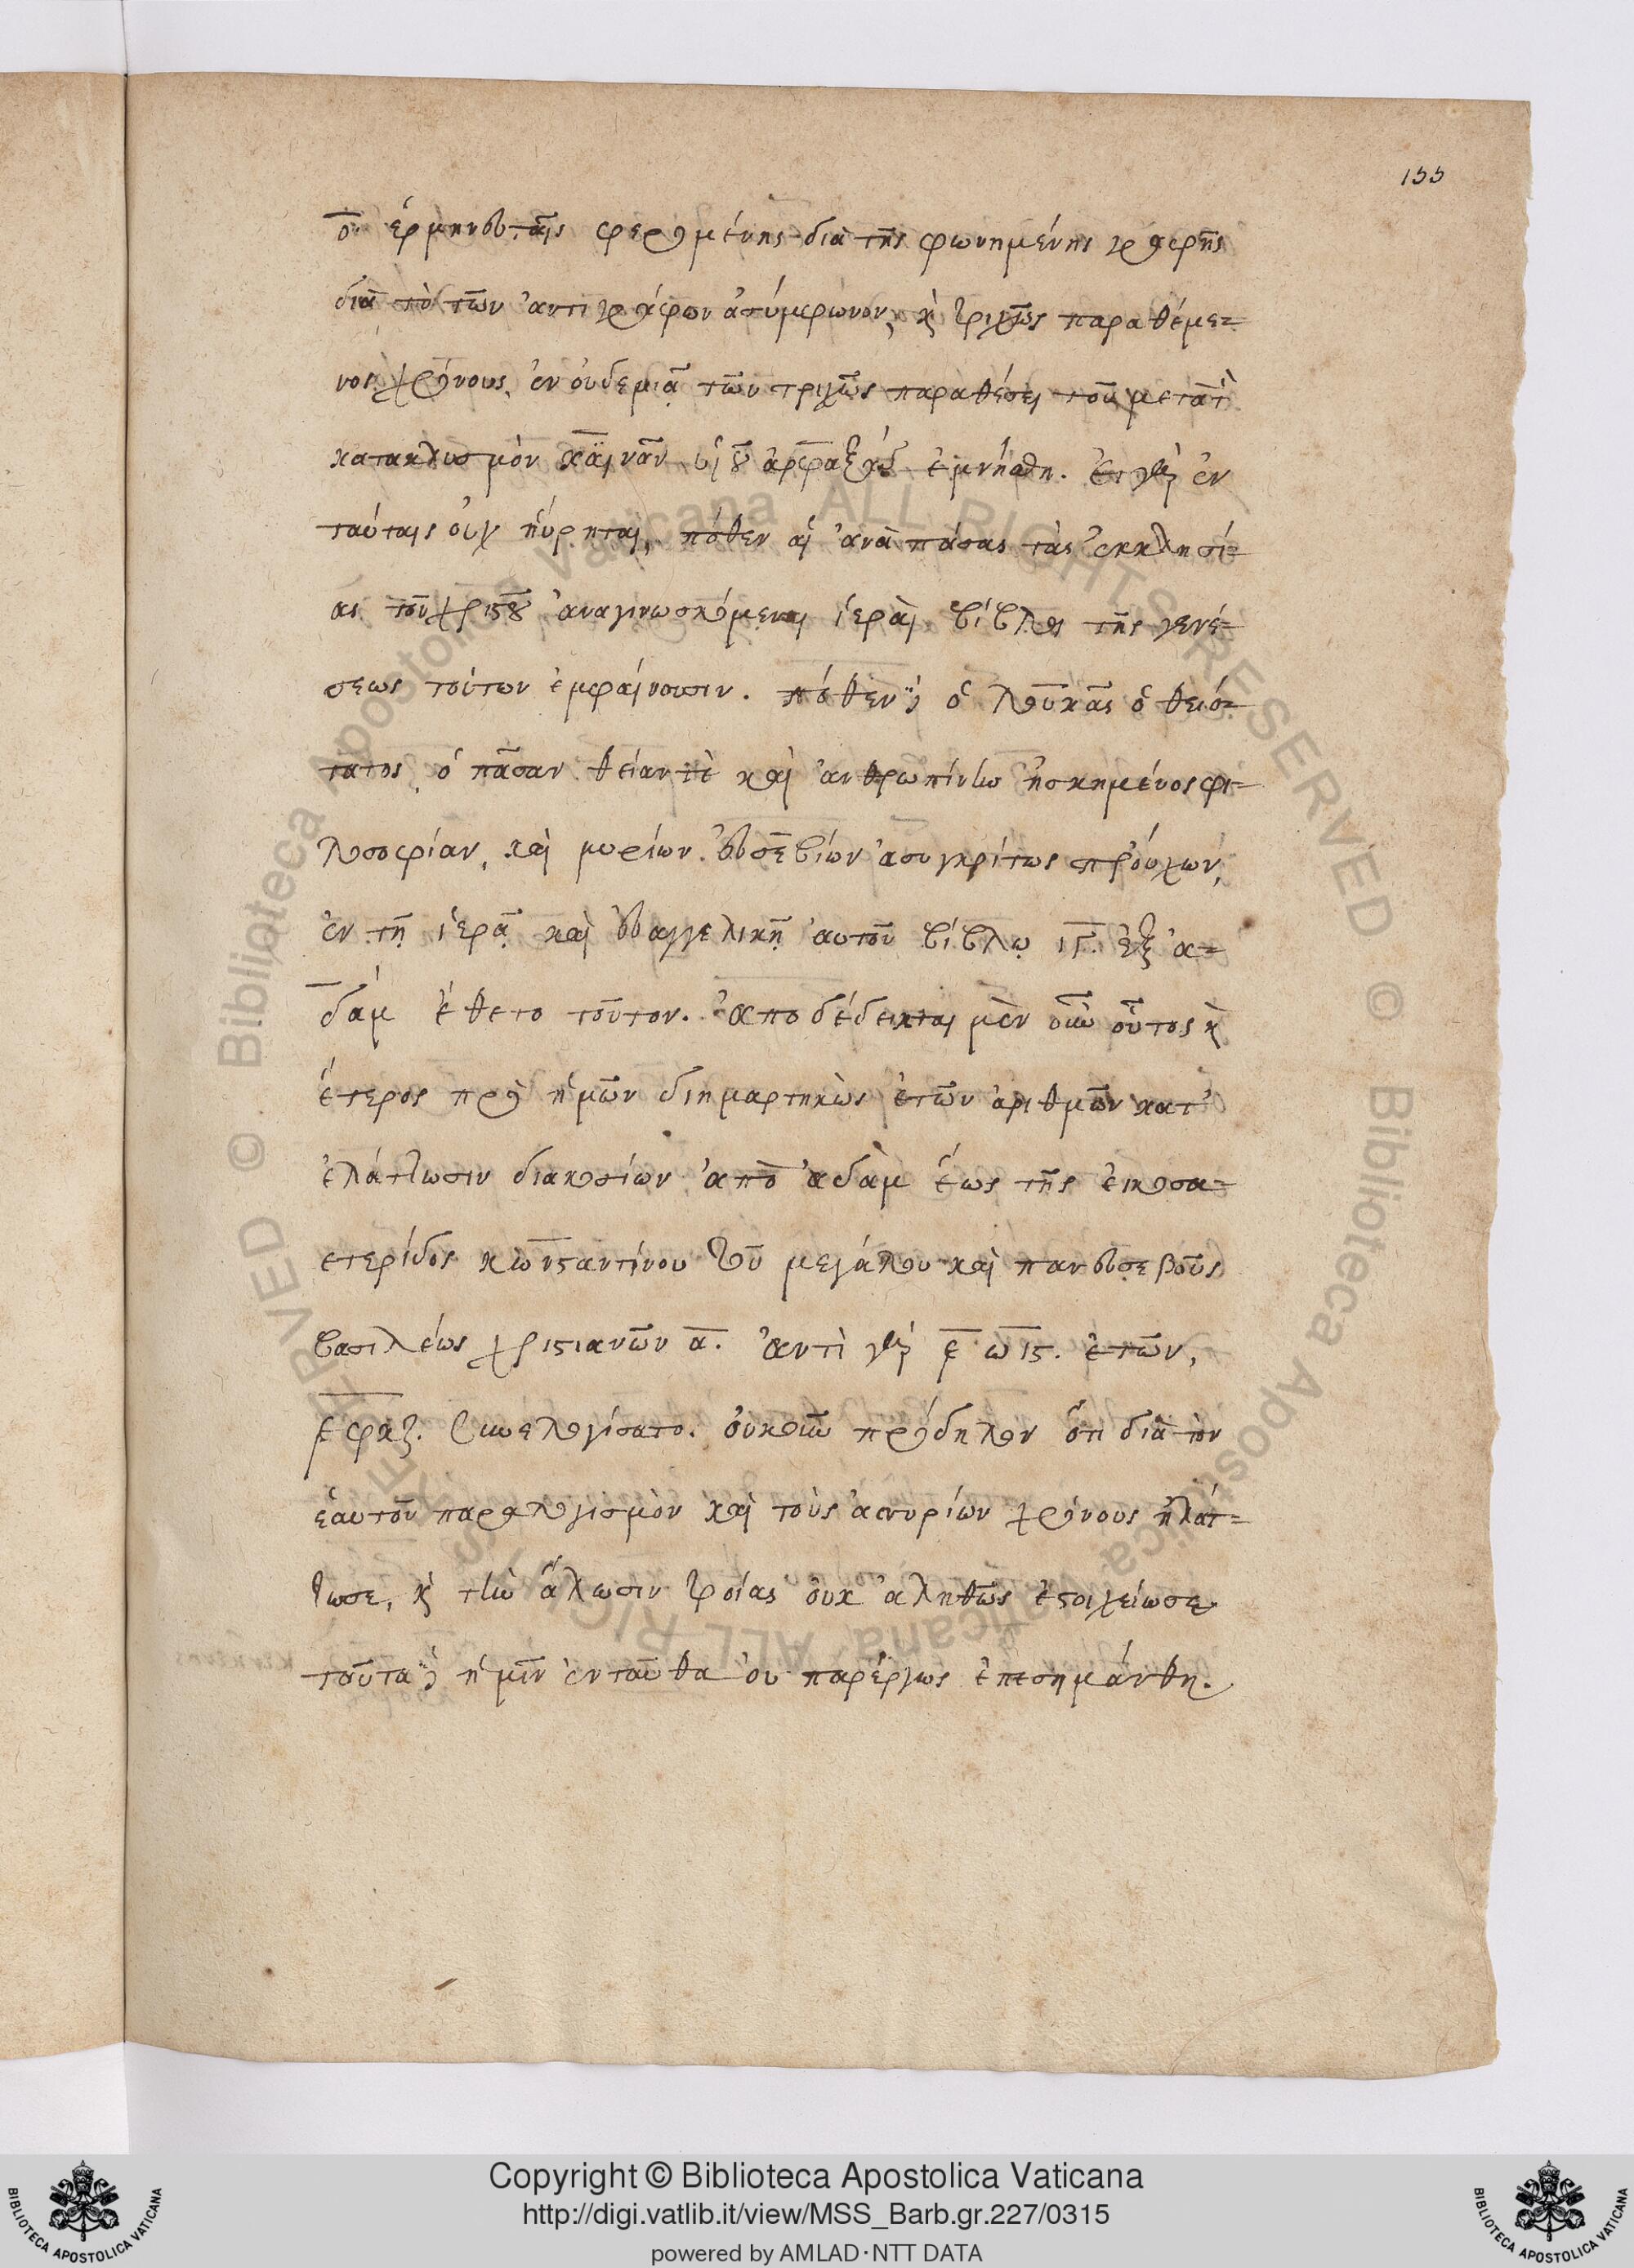 155
ο̅ ἑρμηνευταῖς φερομένης διὰ τῆς φωνημένης γραφῆς
διὰ τὸ τῶν ἀντιγράφων ἀσύμφωνον, κ̀ τριχῶς παραθέμε-
νος χρόνους, ἐν οὐδεμιᾷ τῶν τριχῶς παραθέσει τοῦ μετὰ τ̀
κατακλυσμὸν καϊνᾶν υἱοῦ ἀρφαξὰδ ἐμνήσθη. Εἰ γὰρ ἐν
ταύταις οὐχ ηὕρηται, πόθεν αἱ ἀνὰ πάσας τὰς ἐκκλησί-
ας τοῦ χριστοῦ ἀναγινωσκόμεναι ἱεραὶ βίβλοι τῆς γενέ-
σεως τοῦτον ἐμφαίνουσιν. πόθεν δὲ ὁ λουκᾶς ὁ θειό-
τατος, ὁ πᾶσαν θείαν τὲ καὶ ἀνθρωπίνην ἠσκημένος φι-
λοσοφίαν, καὶ μυρίων εὐσεβίων ἀσυγκρίτως προύχων,
ἐν τῇ ἱερᾷ καὶ εὐαγγελικῇ αὐτοῦ βίβλῳ ιγ̅. ἐξ ἀ-
δὰμ ἔθετο τοῦτον. Ἀποδέδεικται μὲν οὖν οὗτος κ̀
ἕτερος πρὸ ἡμῶν διημαρτηκὼς ἐτῶν ἀριθμῶν κατ'
ἐλάττωσιν διακοσίων ἀπὸ ἀδὰμ ἕως τῆς εἰκοσα-
ετερίδος κωνσταντίνου τοῦ μεγάλου καὶ πανευσεβοῦς
βασιλέως χριστιανῶν α̅. Ἀντὶ γὰρ ͵ε̅ ω̅ις. ἐτῶν,
͵εφκζ. συνελογίσατο. οὐκοῦν πρόδηλον ὅτι διὰ τὸν
ἑαυτοῦ παραλογισμὸν καὶ τοὺς ἀσσυρίων χρόνους ἠλάτ-
τωσε, κ̀ τὴν ἅλωσιν τροίας οὐκ ἀληθῶς ἐστοιχείωσε.
ταῦτα δὲ ἡμῖν ἐνταῦθα οὐ παρέργως ἐπεσημάνθη.
© Biblioteca Apostolica Vaticana ALL RIGHTS RESERVED © Biblioteca Apostolica Vaticana ALL RIGHTS RESERVED
Copyright © Biblioteca Apostolica Vaticana
http://digi.vatlib.it/view/MSS_Barb.gr.227/0315
powered by AMLAD·NTT DATA
BIBLIOTECA APOSTOLICA VATICANA
BIBLIOTECA APOSTOLICA VATICANA